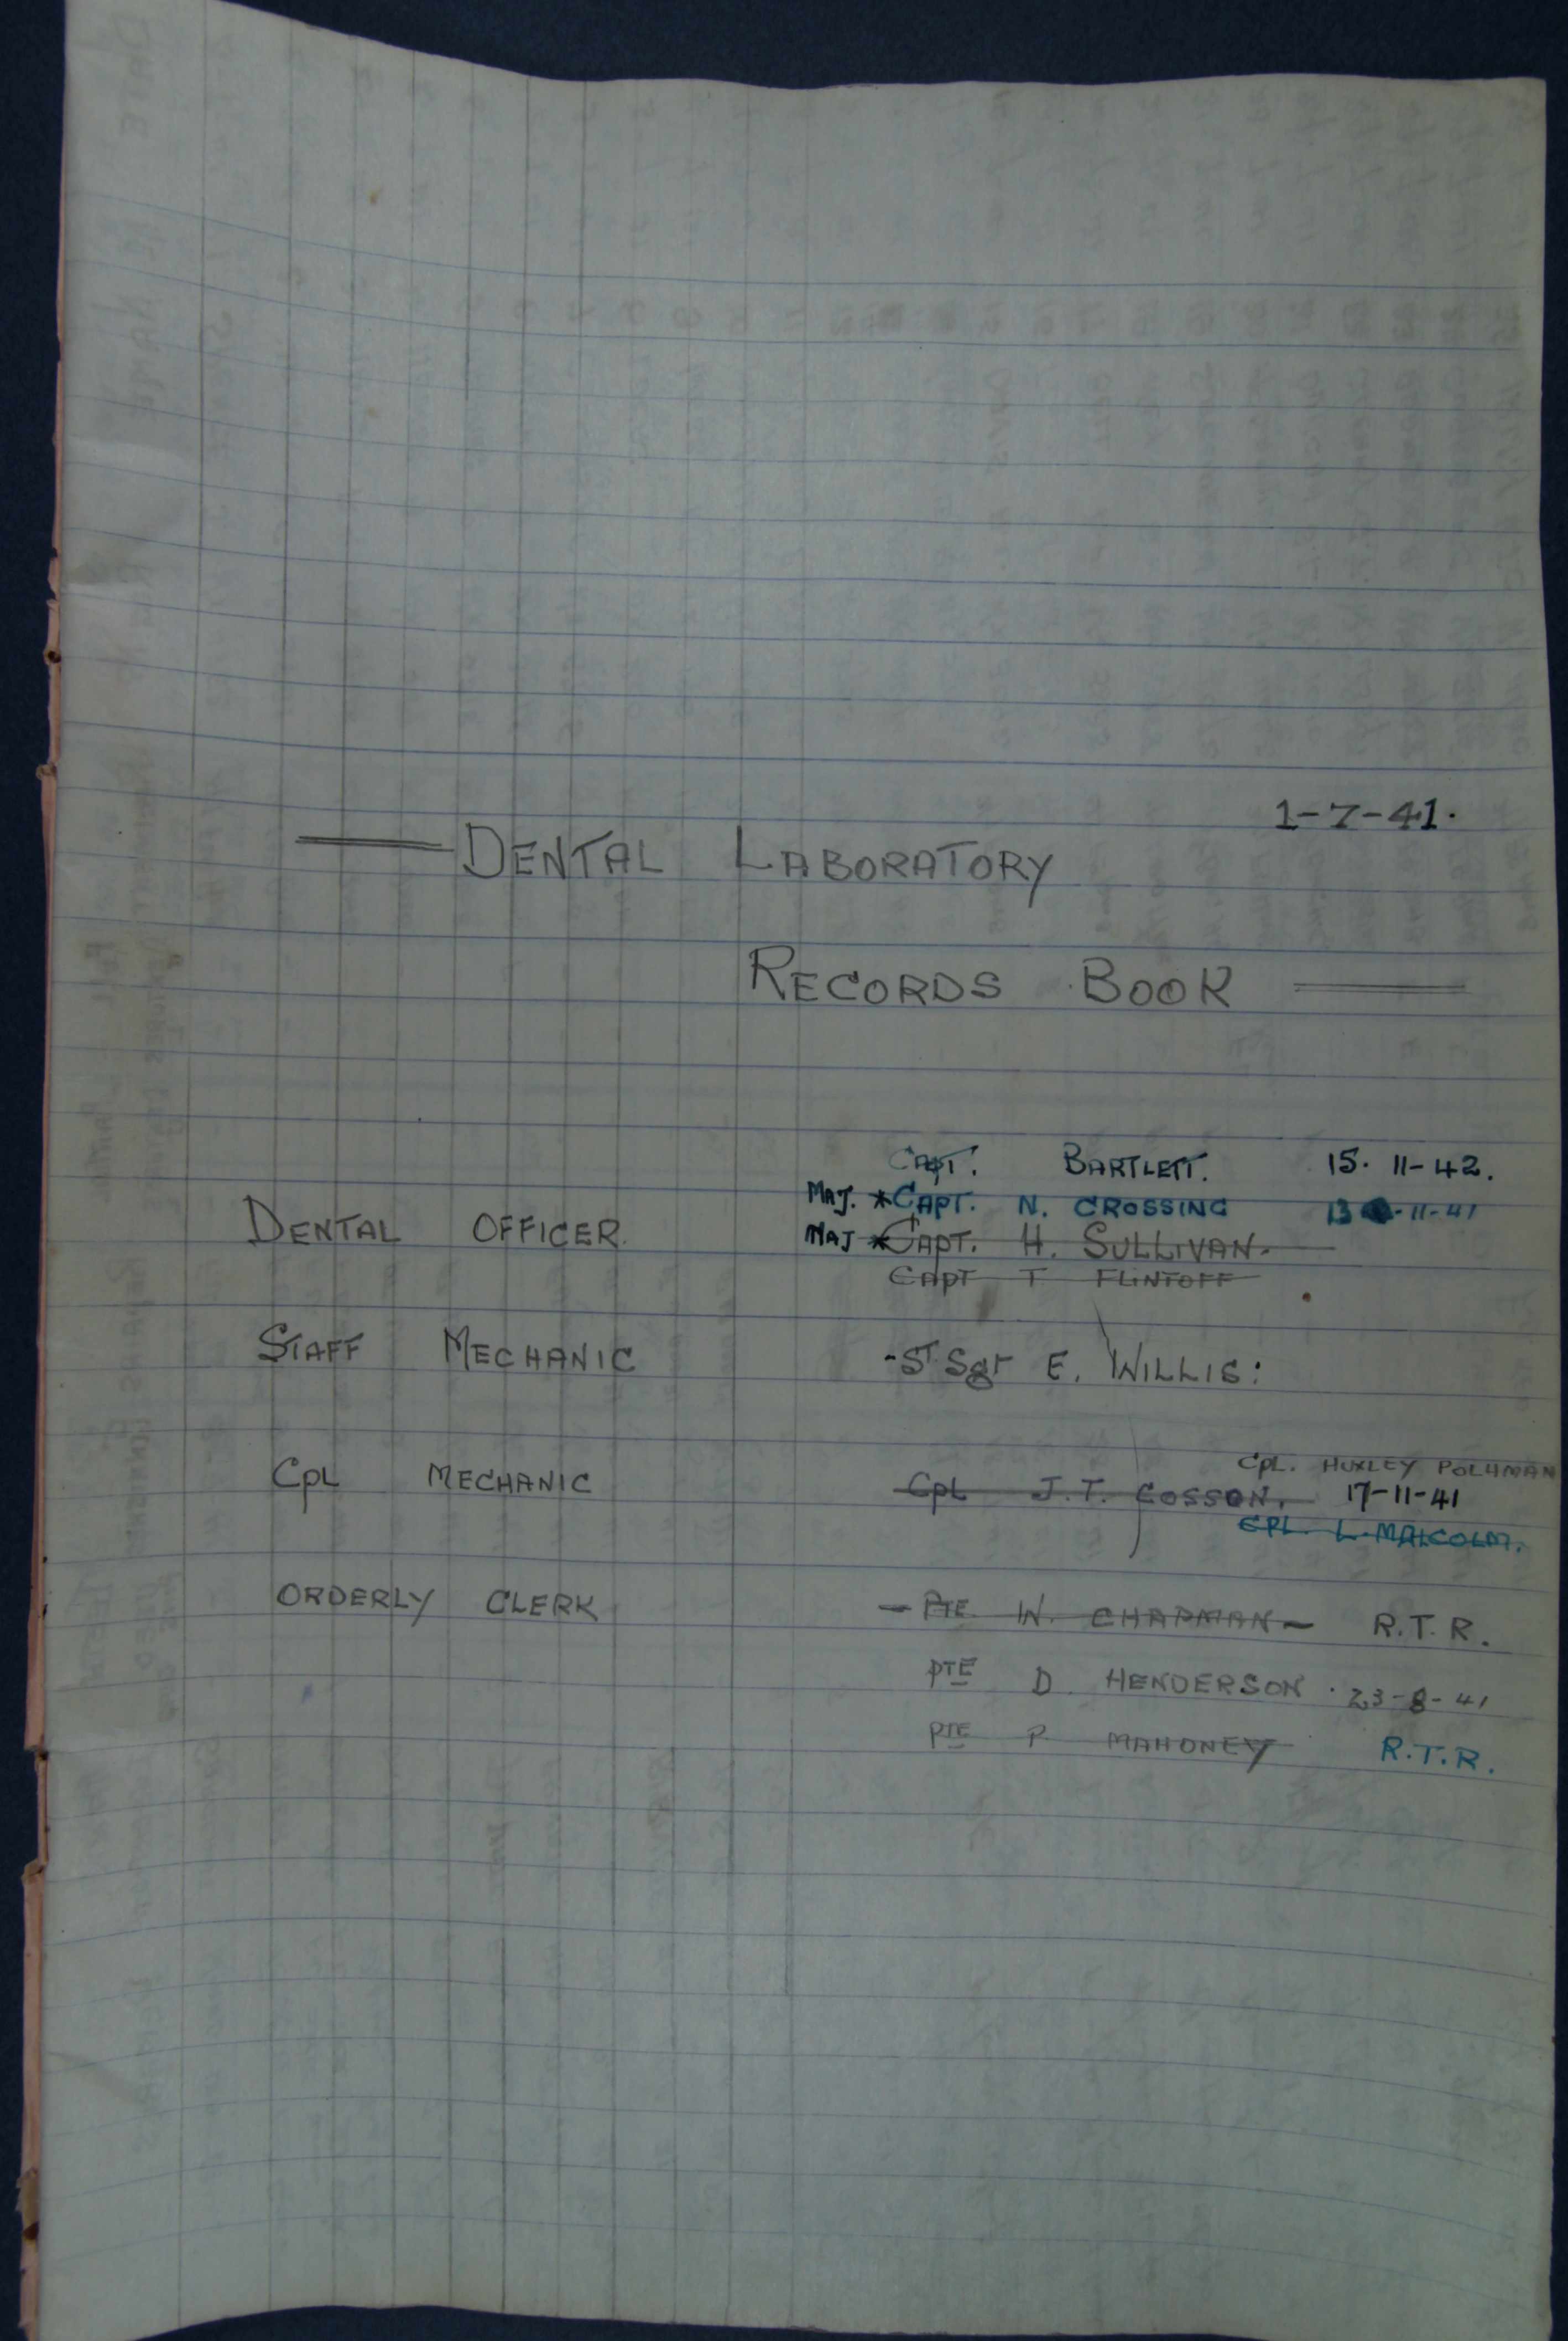 1-7-41.
DENTAL LABORATORY
RECORDS BOOK
CAPT. BARTLETT. 15. 11-42.
MAJ. *CAPT. N. CROSSING 13 -11-41
DENTAL OFFICER. MAJ *CAPT. H. SULLIVAN.
CAPT T FLINTOFF
STAFF MECHANIC -ST Sgt E. WILLIS:
CPL. HUXLEY POLHMAN
CPL MECHANIC CPL J.T. COSSON. 17-11-41
CPL. L. MALCOLM.
ORDERLY CLERK - PTE W. CHAPMAN - R.T.R.
PTE D. HENDERSON. 23-8-41
PTE P MAHONEY R.T.R.